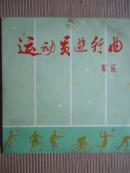 运动员进行曲
军乐